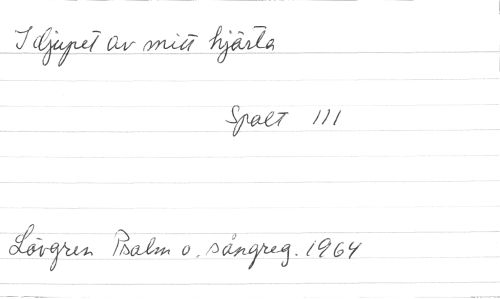 I djupet av mitt hjärta
Spalt 111
Lövgren Psalm o. sångreg. 1964